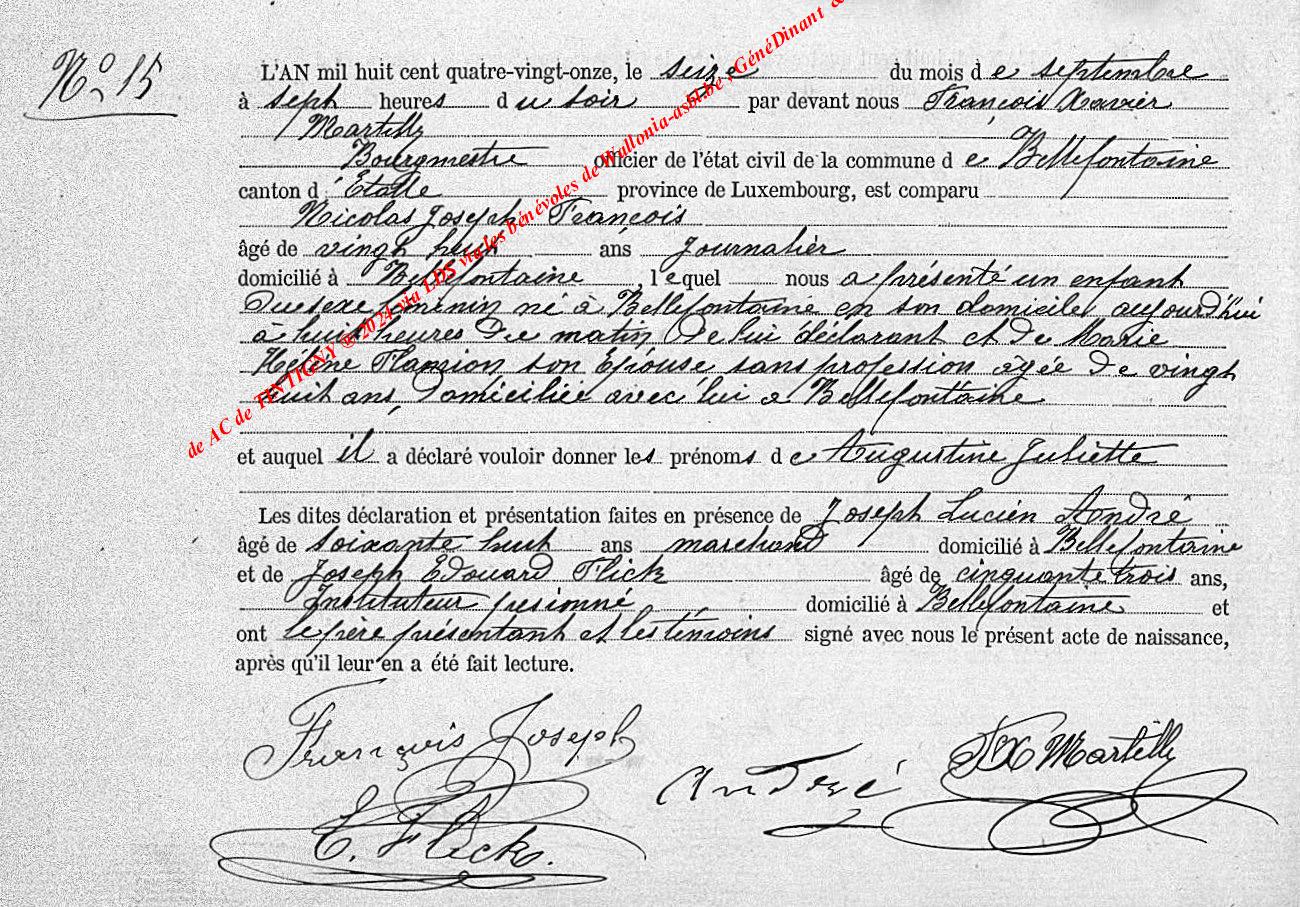 N° 15
L'AN mil huit cent quatre-vingt-onze, le seize du mois d e septembre
à seph heures d u soir par devant nous François Xavier
Martilly
Bourgmestre officier de l'état civil de la commune d e Bellefontaine
canton d 'Etalle province de Luxembourg, est comparu
Nicolas Joseph François
âgé de vingh huit ans journalier
domicilié à Bellefontaine, lequel nous a présenté un enfant
Du sexe féminin né à Bellefontaine en son domicile aujourd'hui
à huit heures Du matin De lui déclarant et de Marie
Hélène Flamion son Epouse sans profession âgée De vingh
huit ans, Domiciliée avec lui a Bellefontaine
et auquel il a déclaré vouloir donner les prénoms d e Augustine Juliette
Les dites déclaration et présentation faites en présence de Joseph Lucien André
âgé de soixante huit ans marchand domicilié à Bellefontaine
et de Joseph Edouard Flick âgé de cinquante trois ans,
Instituteur pensionné domicilié à Bellefontaine et
ont le père présentant et les témoins signé avec nous le présent acte de naissance,
après qu'il leur en a été fait lecture.
François Joseph
FX Martilly
André
E. Flick.
de AC de TINTIGNY ® 2024 via LDS via les bénévoles de Wallonia-asbl.be, GénéDinant &